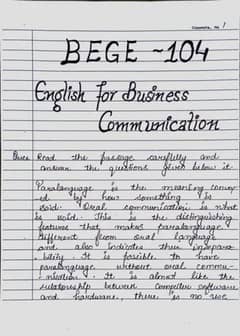 BEGE - 104
English for Business
Communication
Read the passage carefully and
answer the questions given below it.
Paralanguage is the meaning convey-
ed by how something is
said. Oral communication is what
is said. This is the distinguishing
feature that makes paralanguage
different from oral language
and also indicates their insepara-
bility. It is possible to have
paralanguage without oral commu-
nication. It is almost like the
relationship between computer software
and hardware, there is no use